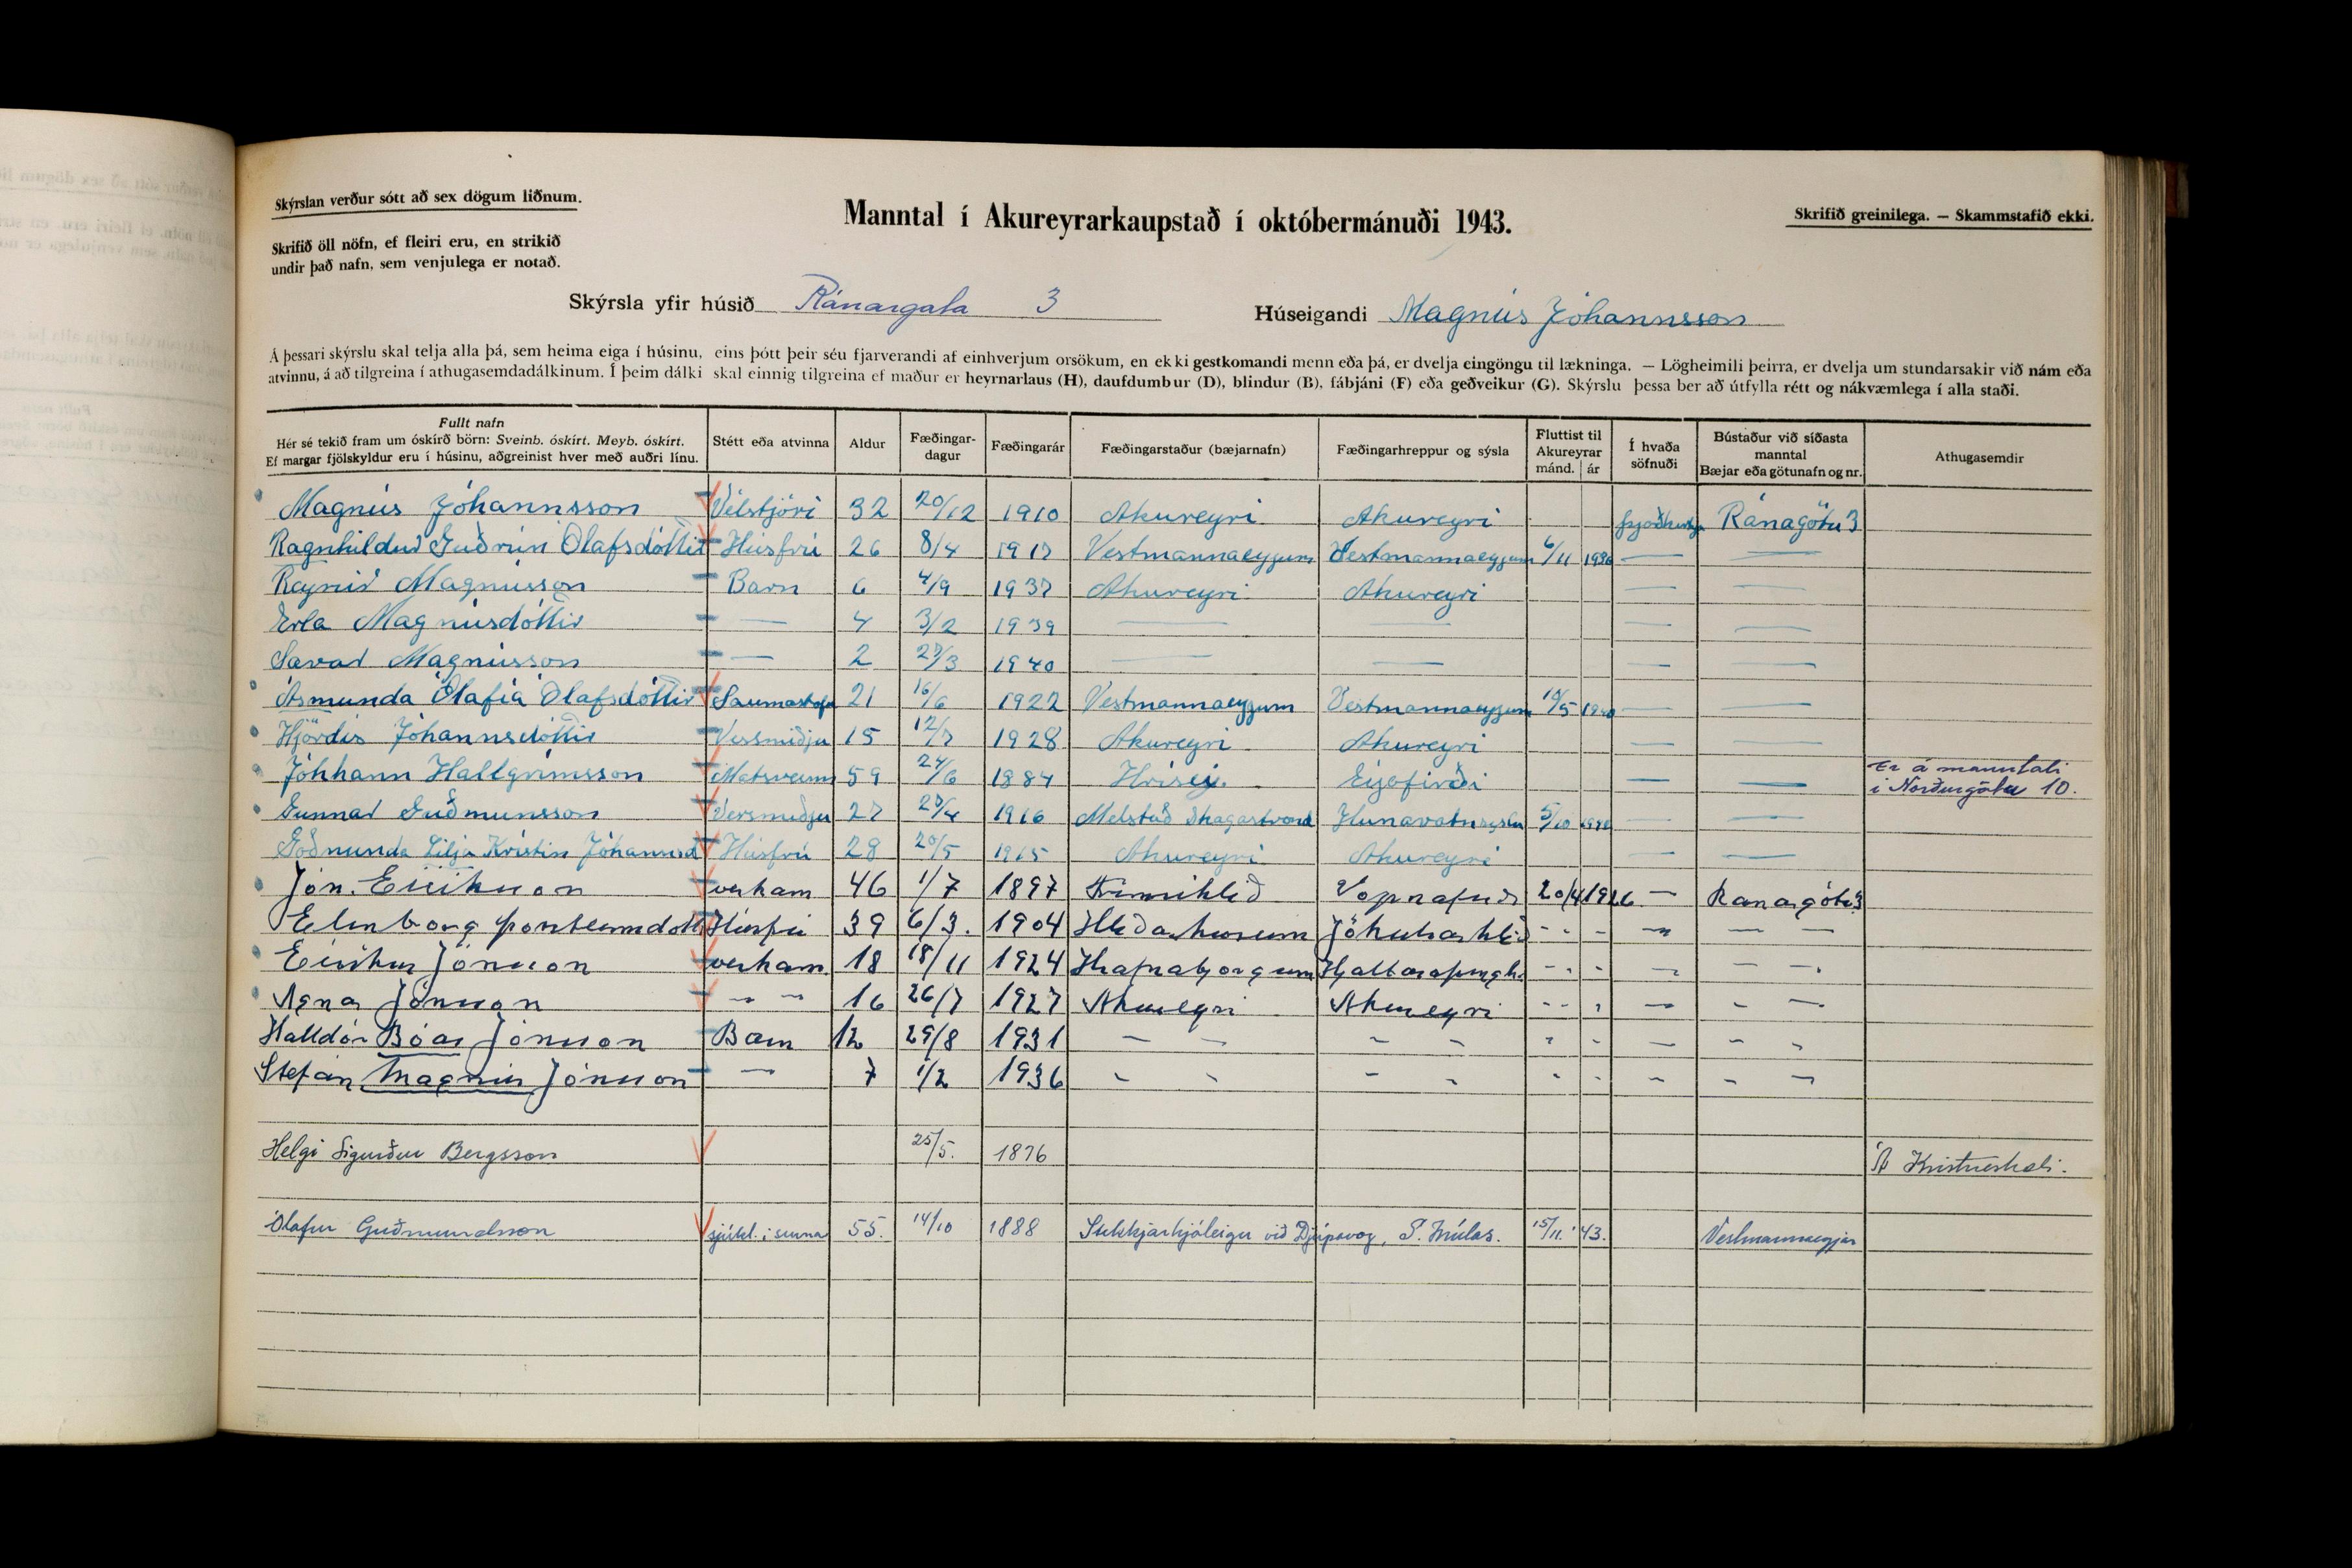 Skýrslan verður sótt að sex dögum liðnum.
Manntal í Akureyrarkaupstað í októbermánuði 1943.
Skrifið greinilega. — Skammstafið ekki.
Skrifið öll nöfn, ef fleiri eru, en strikið
undir það nafn, sem venjulega er notað.
Skýrsla yfir húsið Ránargata 3 Húseigandi Magnús Jóhannsson
Á þessari skýrslu skal telja alla þá, sem heima eiga í húsinu, eins þótt þeir séu fjarverandi af einhverjum orsökum, en ekki gestkomandi menn eða þá, er dvelja eingöngu til lækninga. — Lögheimili þeirra, er dvelja um stundarsakir við nám eða
atvinnu, á að tilgreina í athugasemdadálkinum. Í þeim dálki skal einnig tilgreina ef maður er heyrnarlaus (H), daufdumbur (D), blindur (B), fábjáni (F) eða geðveikur (G). Skýrslu þessa ber að útfylla rétt og nákvæmlega í alla staði.
Fullt nafn
Hér sé tekið fram um óskírð börn: Sveinb. óskírt. Meyb. óskírt.
Ef margar fjölskyldur eru í húsinu, aðgreinist hver með auðri línu.
Stétt eða atvinna
Aldur
Fæðingar-
dagur
Fæðingarár
Fæðingarstaður (bæjarnafn)
Fæðingarhreppur og sýsla
Fluttist til
Akureyrar
mánd. ár
Í hvaða
söfnuði
Bústaður við síðasta
manntal
Bæjar eða götunafn og nr.
Athugasemdir
Magnús Jóhannsson Vélstjóri 32 20/12 1910 Akureyri Akureyri Ránagötu 3
Ragnhildur Guðrún Ólafsdóttir Húsfrú 26 8/4 1917 Vestmannaeyjum Vestmannaeyjum 6/11 1936 — —
Reynir Magnússon Barn 6 4/9 1937 Akureyri Akureyri — —
Erla Magnúsdóttir — 4 3/2 1939 — — — —
Sævar Magnússon — 2 1940 — — — —
Ásmunda Ólafía Ólafsdóttir Saumastofa 21 16/6 1922 Vestmannaeyjum Vestmannaeyjum — —
Hjördís Jóhannsdóttir 15 12/7 1928 Akureyri Akureyri — —
Jóhhann Hallgrímsson Matsveinn 59 24/6 1884 Hrísey Eyjofirði — — Er á manntali
í Norðurgötu 10.
Gunnar Guðmunsson 27 1916 Melstað Skagaströnd Húnavatnssýslu 5/10 — —
Goðmunda Lilja Kristín Jóhannsd Húsfrú 28 20/5 1915 Akureyri Akureyri — —
Jón. Eiríksson verkam 46 1/7 1897 Vopnafirði 20/4 1926 — Ránargötu 3
Elinborg Þorsteinnsdótti Húsfrú 39 6/3. 1904 Hlíðarhúsum Jökulsárhlíð - - - — — —
Eiríkur Jónsson verkam. 18 18/11 1924 Hrafnabjorgum - - - — — —
Agnar Jónsson — — 16 26/7 1927 Akureyri Akureyri - - - — - —
Halldór Bóas Jónsson Barn 12 29/8 1931 — — - - - - — - -
Stefán Magnús Jónsson — 7 1/2 1936 - - - - - - - - —
Helgi Sigurður Bergsson 25/5. 1876 Á Kristneshæli.
Ólafur Guðmundsson 55. 14/10 1888 Stekkjarhjáleigu við Djúpavog, S. Múlas. 15/11. '43. Vestmannaeyjar